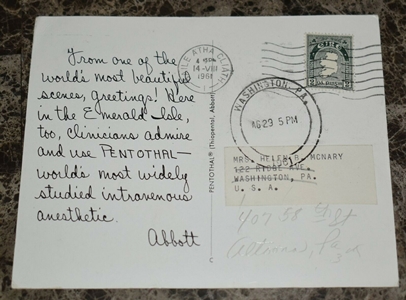 From one of the
world's most beautiful
scenes, greetings! Here
in the Emerald Isle,
too, clinicians admire
and use PENTOTHAL—
world's most widely
studied intravenous
anesthetic.
Abbott
PENTOTHAL® (Thiopental, Abbott)
ATHA CLIATH
14-VIII
1961
WASHINGTON, Pa.
AG 29 5 PM
MRS. HELEN R. MCNARY
122 RIDGE AVE.
WASHINGTON, PA.
U. S. A.
407 58 St
Altoona, Pa